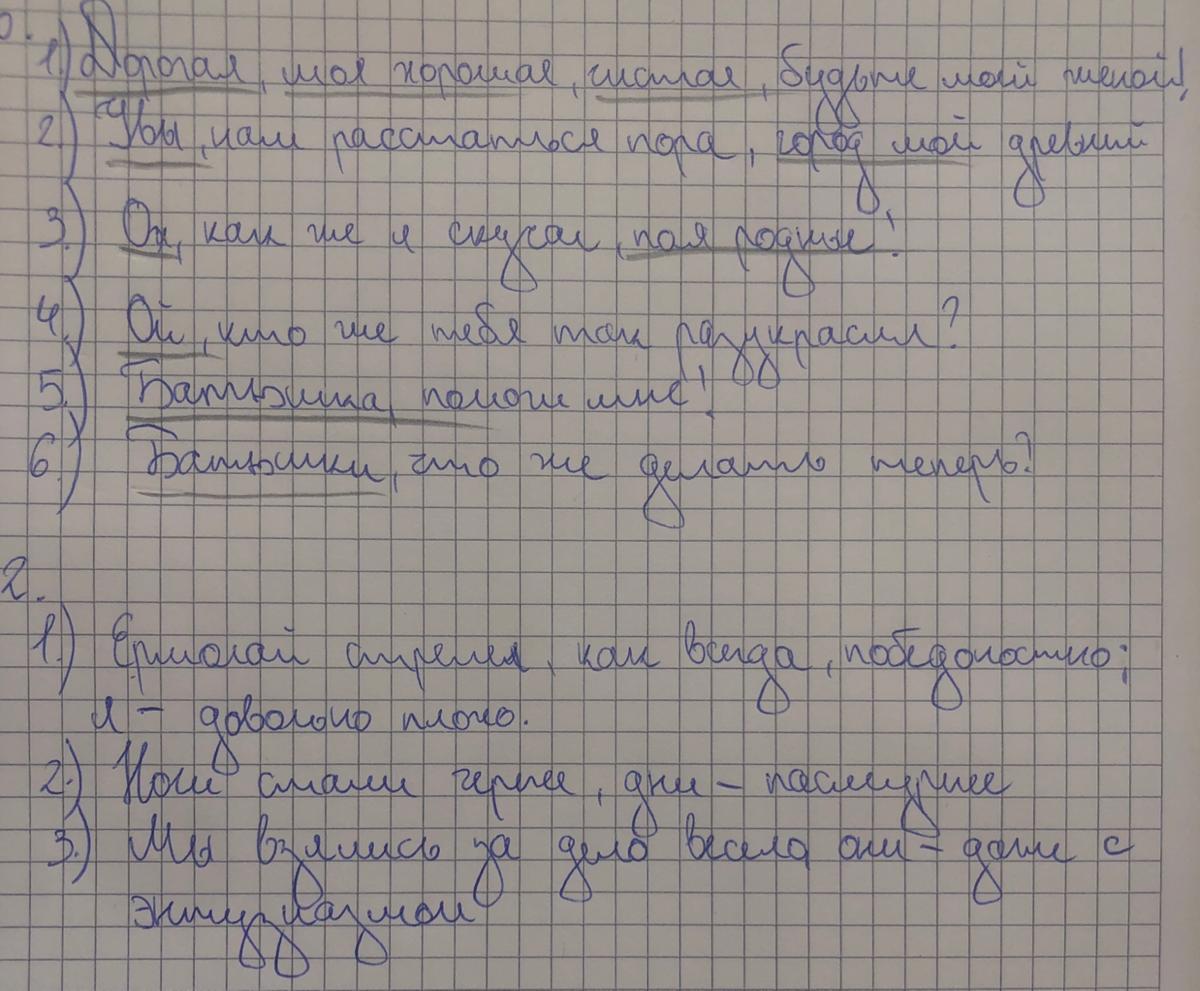 1) Дорогая, моя хорошая, чистая, будьте моей женой!
2.) Увы, нам расстаться пора, город мой древний
3.) Ох, как же я скучал, поля родные!
4.) Ой, кто же тебя так разукрасил?
5.) Батюшка, помоги мне!
6.) Батюшки, что же делать теперь?
2.
1.) Ермолай стрелял, как всегда, победоностно;
я – довольно плохо.
2.) Ночи стали чернее, дни – пасмурнее
3.) Мы взялись за дело весело они – даже с
энтузиазмом